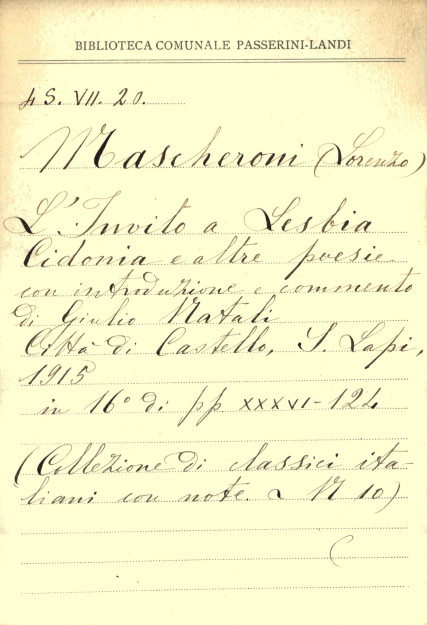 BIBLIOTECA COMUNALE PASSERINI-LANDI
4 S. VII. 20.
Mascheroni (Lorenzo)
L'Invito a Lesbia
Cidonia e altre poesie
con introduzione e commento
di Giulio Natali
Città di Castello, S. Lapi,
1915
in 16° di pp. XXXVI-124
(Collezione di classici ita-
liani con note. N 10)